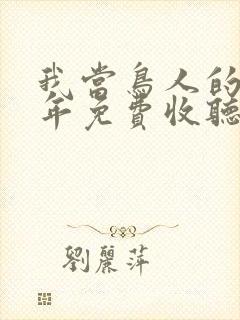 我當鳥人的
年免費收聽
劉麗萍